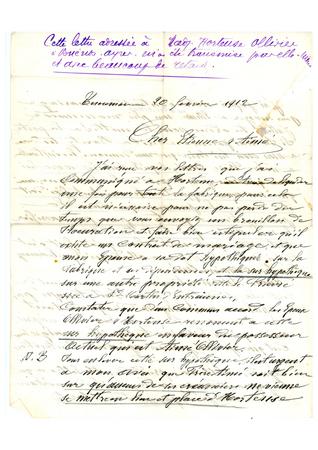 Cette lettre adressée à Mad. Hortense Ollivier
à Buenos-Ayres m'a été transmise par elle-même
et avec beaucoup de retard.
Tucuman 30 Janvier 1912
Cher Etienne & Aimé
J'ai reçu vos lettres que j'ai
communiqué à Hortense,
une fois pour toute la fabrique, pour cela
il est nécessaire pour ne pas perdre du
temps que vous envoyiez un brouillon de
Procuration et faire bien
existe un Contrat de mariage et que
mon hypothèque, sur la
fabrique et ses dépendances, et la sur hypothèque
sur une autre propriété
à St Martin, Entraunes,
Constater que d'un Commun accord les Epoux
Ollivier d'Hortense renoncent à cette
sur hypothèque en faveur du possesseur
Actuel qui est Aimé Ollivier.
N.B. Pour enlever cette sur hypothèque, il est urgent
à mon avis que Aimé soit bien
sur qu'aucun de ses créanciers ne vienne
se mettre en lieu et place d'Hortense